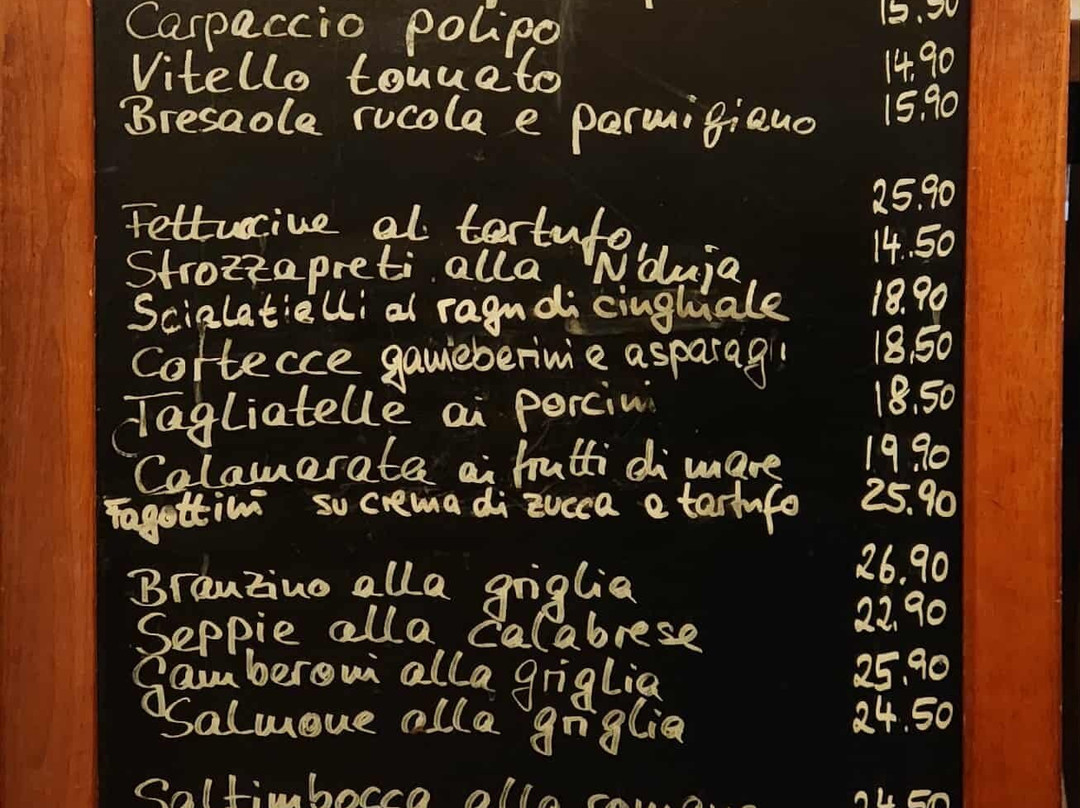 Carpaccio polipo 15.50
Vitello tonnato 14.90
Bresaola rucola e parmigiano 15.90
Fettuccine al tartufo 25.90
Strozzapreti alla N'duja 14.50
Scialatielli al ragu di cinghiale 18.90
Cortecce gamberini e asparagi 18,50
Tagliatelle ai porcini 18.50
Calamarata ai frutti di mare 19.90
Fagottini su crema di zucca e tartufo 25.90
Branzino alla griglia 26.90
Seppie alla calabrese 22,90
Gamberoni alla griglia 25,90
Salmone alla griglia 24.50
Saltimbocca alla romana 24.50